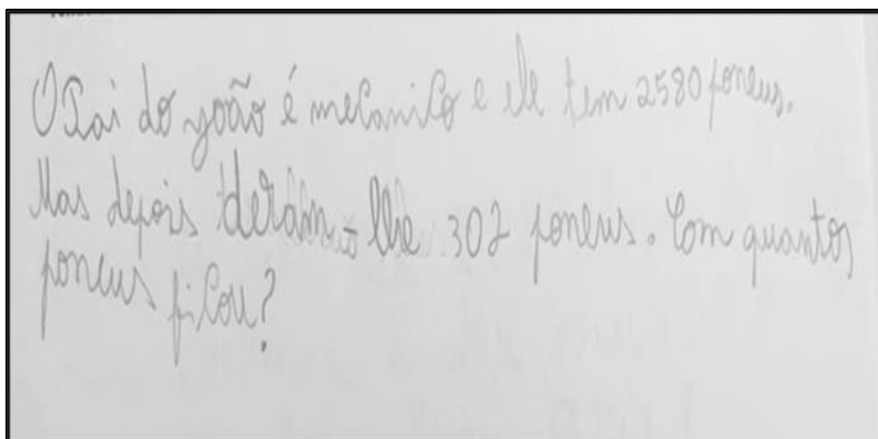 O Pai do joão é mecanico e ele tem 2580 poneus.
Mas depois deram-lhe 302 poneus. Com quantos
poneus ficou?